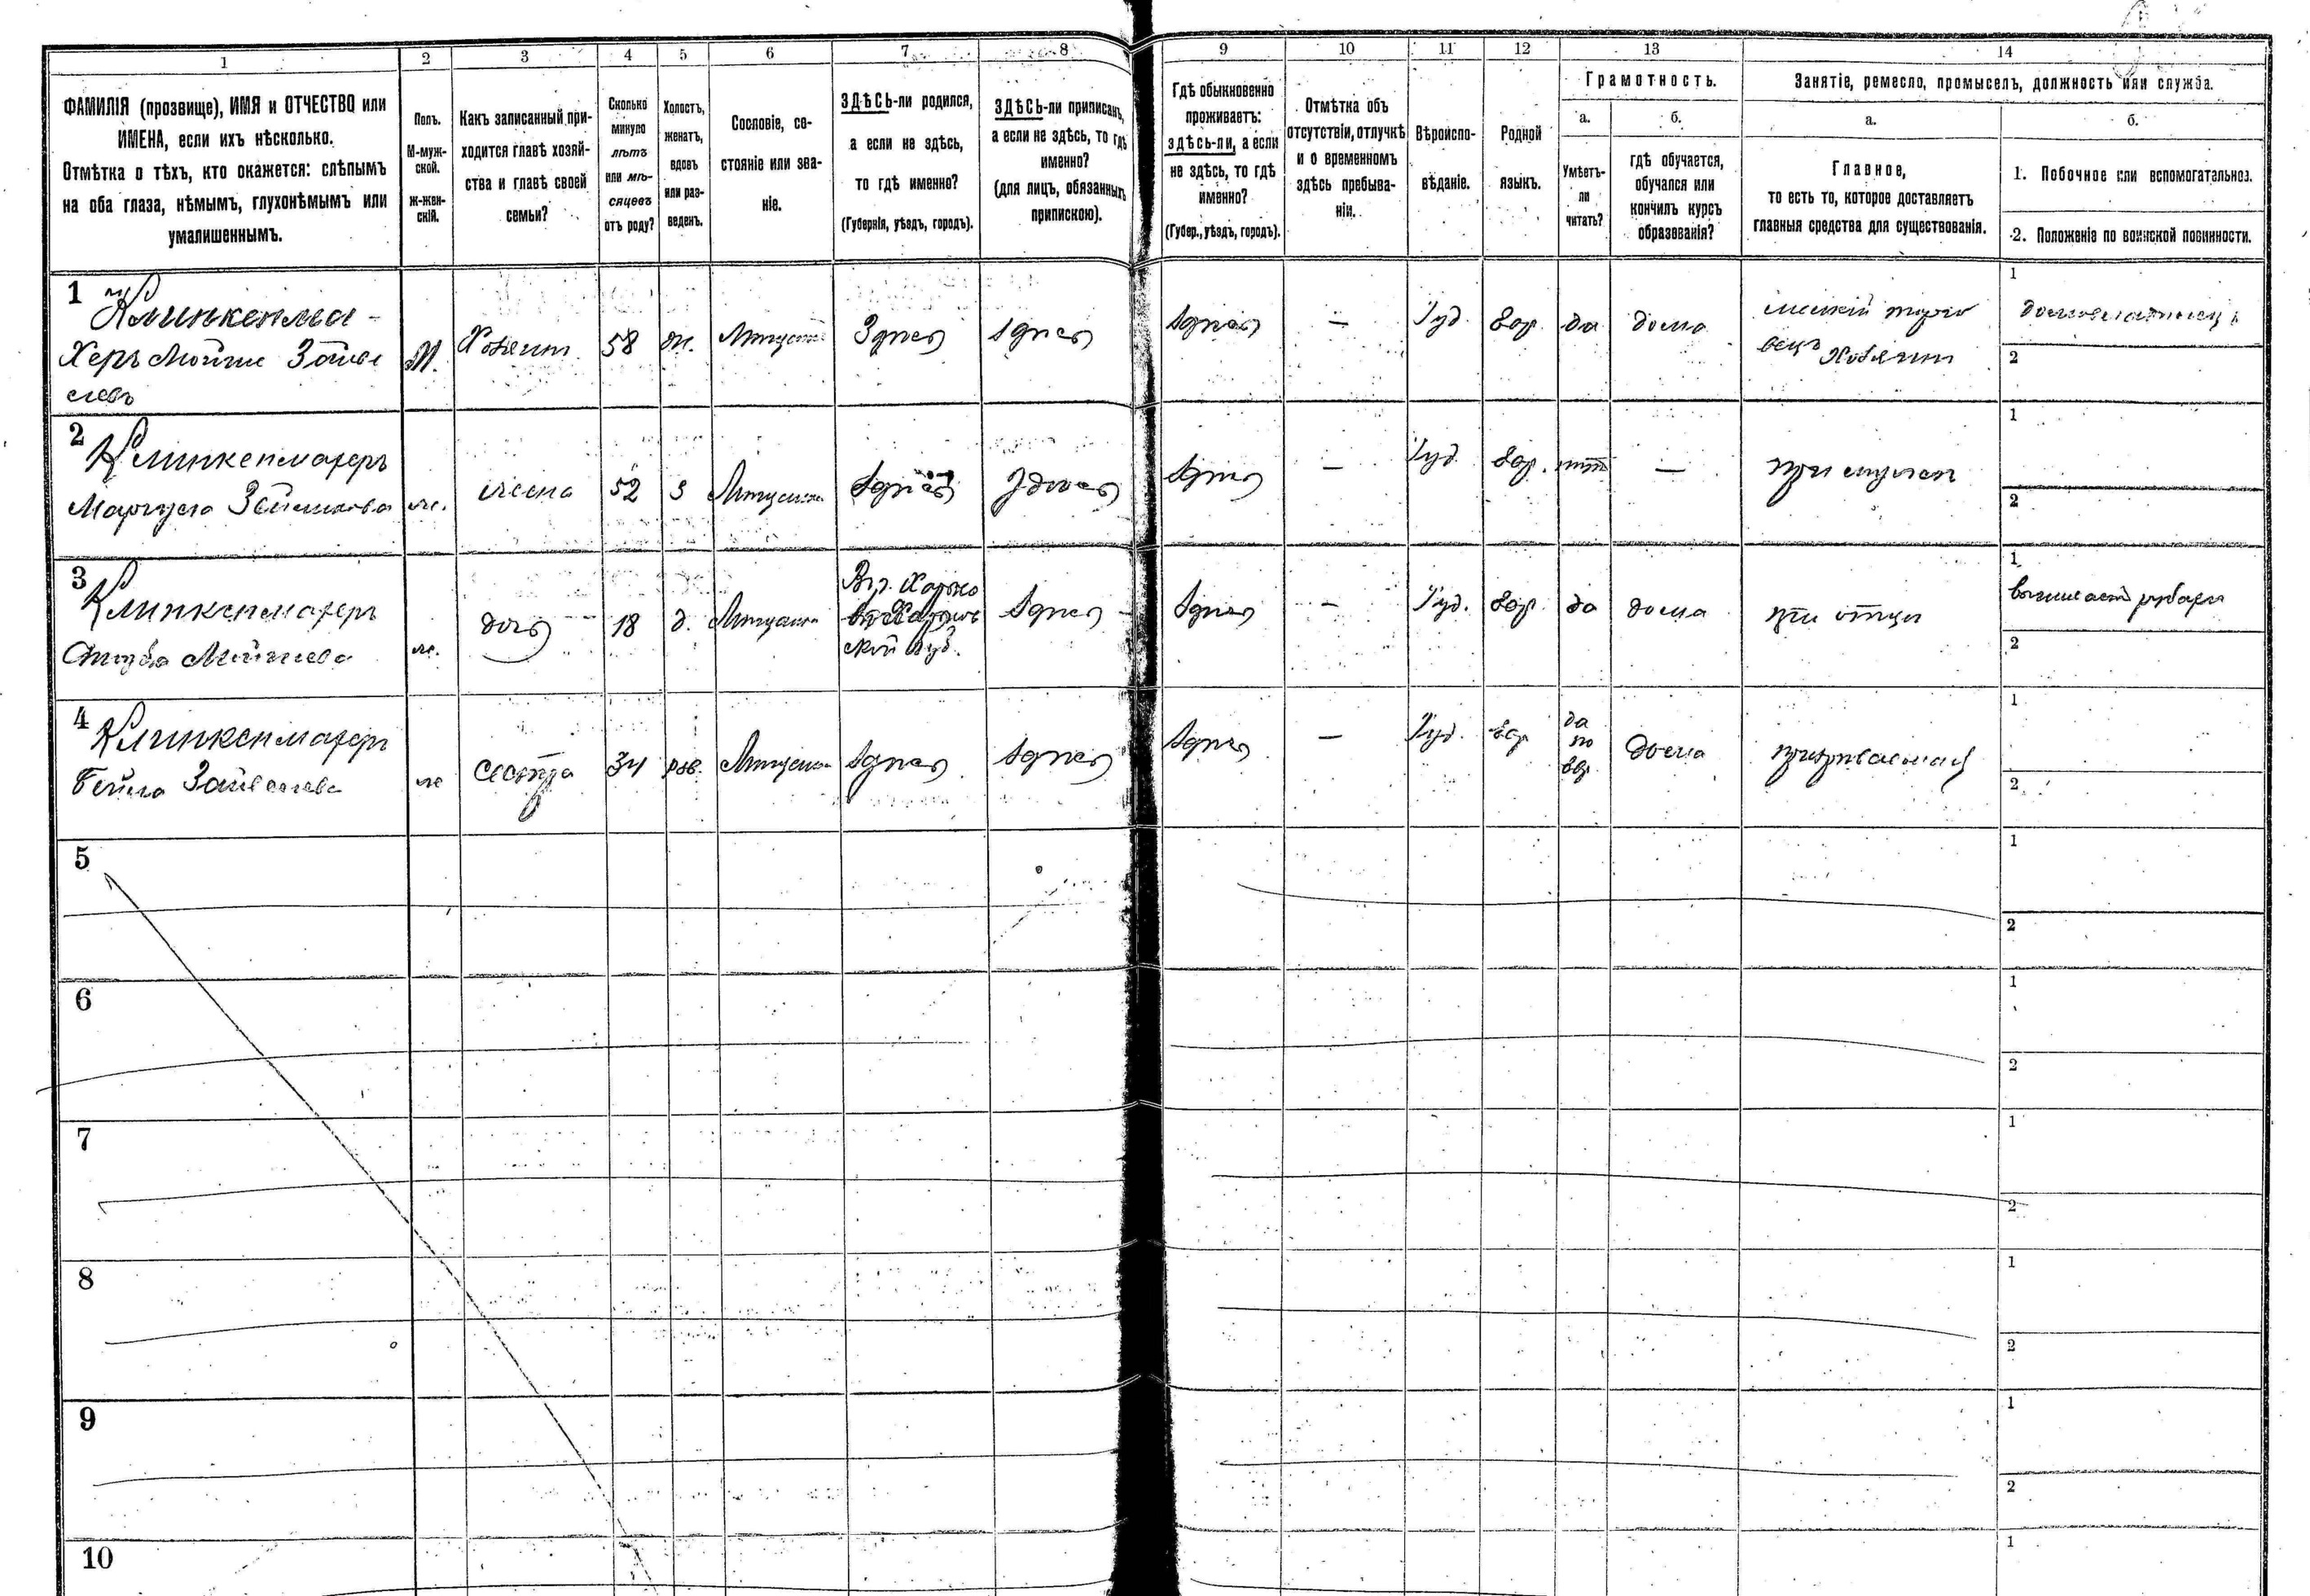 1
2
3
4
5
6
7
8
9
10
11
12
13
14
ФАМИЛІЯ (прозвище), ИМЯ и ОТЧЕСТВО или
ИМЕНА, если ихъ нѣсколько.
Отмѣтка о тѣхъ, кто окажется: слѣпымъ
на оба глаза, нѣмымъ, глухонѣмымъ или
умалишеннымъ.
Полъ.
М-муж-
ской.
Ж-жен-
скій.
Какъ записанный при-
ходится главѣ хозяй-
ства и главѣ своей
семьи?
Сколько
минуло
лѣтъ
или мѣ-
сяцевъ
отъ роду?
Холостъ,
женатъ,
вдовъ
или раз-
веденъ.
Сословіе, со-
стояніе или зва-
ніе.
ЗДѢСЬ-ли родился,
а если не здѣсь,
то гдѣ именно?
(Губернія, уѣздъ, городъ).
ЗДѢСЬ-ли приписанъ,
а если не здѣсь, то гдѣ
именно?
(для лицъ, обязанныхъ
припискою).
Гдѣ обыкновенно
проживаетъ:
здѣсь-ли, а если
не здѣсь, то гдѣ
именно?
(Губер., уѣздъ, городъ).
Отмѣтка объ
отсутствіи, отлучкѣ
и о временномъ
здѣсь пребыва-
ніи.
Вѣроиспо-
вѣданіе.
Родной
языкъ.
Грамотность.
а.
Умѣетъ-
ли
читать?
б.
гдѣ обучается,
обучался или
кончилъ курсъ
образованія?
Занятіе, ремесло, промыселъ, должность или служба.
а.
Главное,
то есть то, которое доставляетъ
главныя средства для существованія.
б.
1. Побочное или вспомогательное.
2. Положеніе по воинской повинности.
1
Клинкенма-
херъ Мойше
М.
Хозяин
58
ж.
Здесь
Здесь
Здесь
—
Іуд.
Евр.
да
дома
мелкій торго
вецъ
1
2
2
Клинкенмахеръ
ж.
жена
52
З
Здесь
Здесь
Здесь
—
Іуд
Евр.
нет
—
при мужеѣ
1
2
3
Клинкенмахеръ
ж.
дочь
18
д.
Вг. Харько
ве Харьков
ской Губ.
Здесь
Здесь
—
Іуд.
Евр.
да
дома
при отцѣ
1
вышивает рубахи
2
4
Клинкенмахеръ
Бейла
ж
сестра
34
Здесь
Здесь
Здесь
—
Іуд.
Евр
да
по
евр.
дома
1
2
5
1
2
6
1
2
7
1
2
8
1
2
9
1
2
10
1